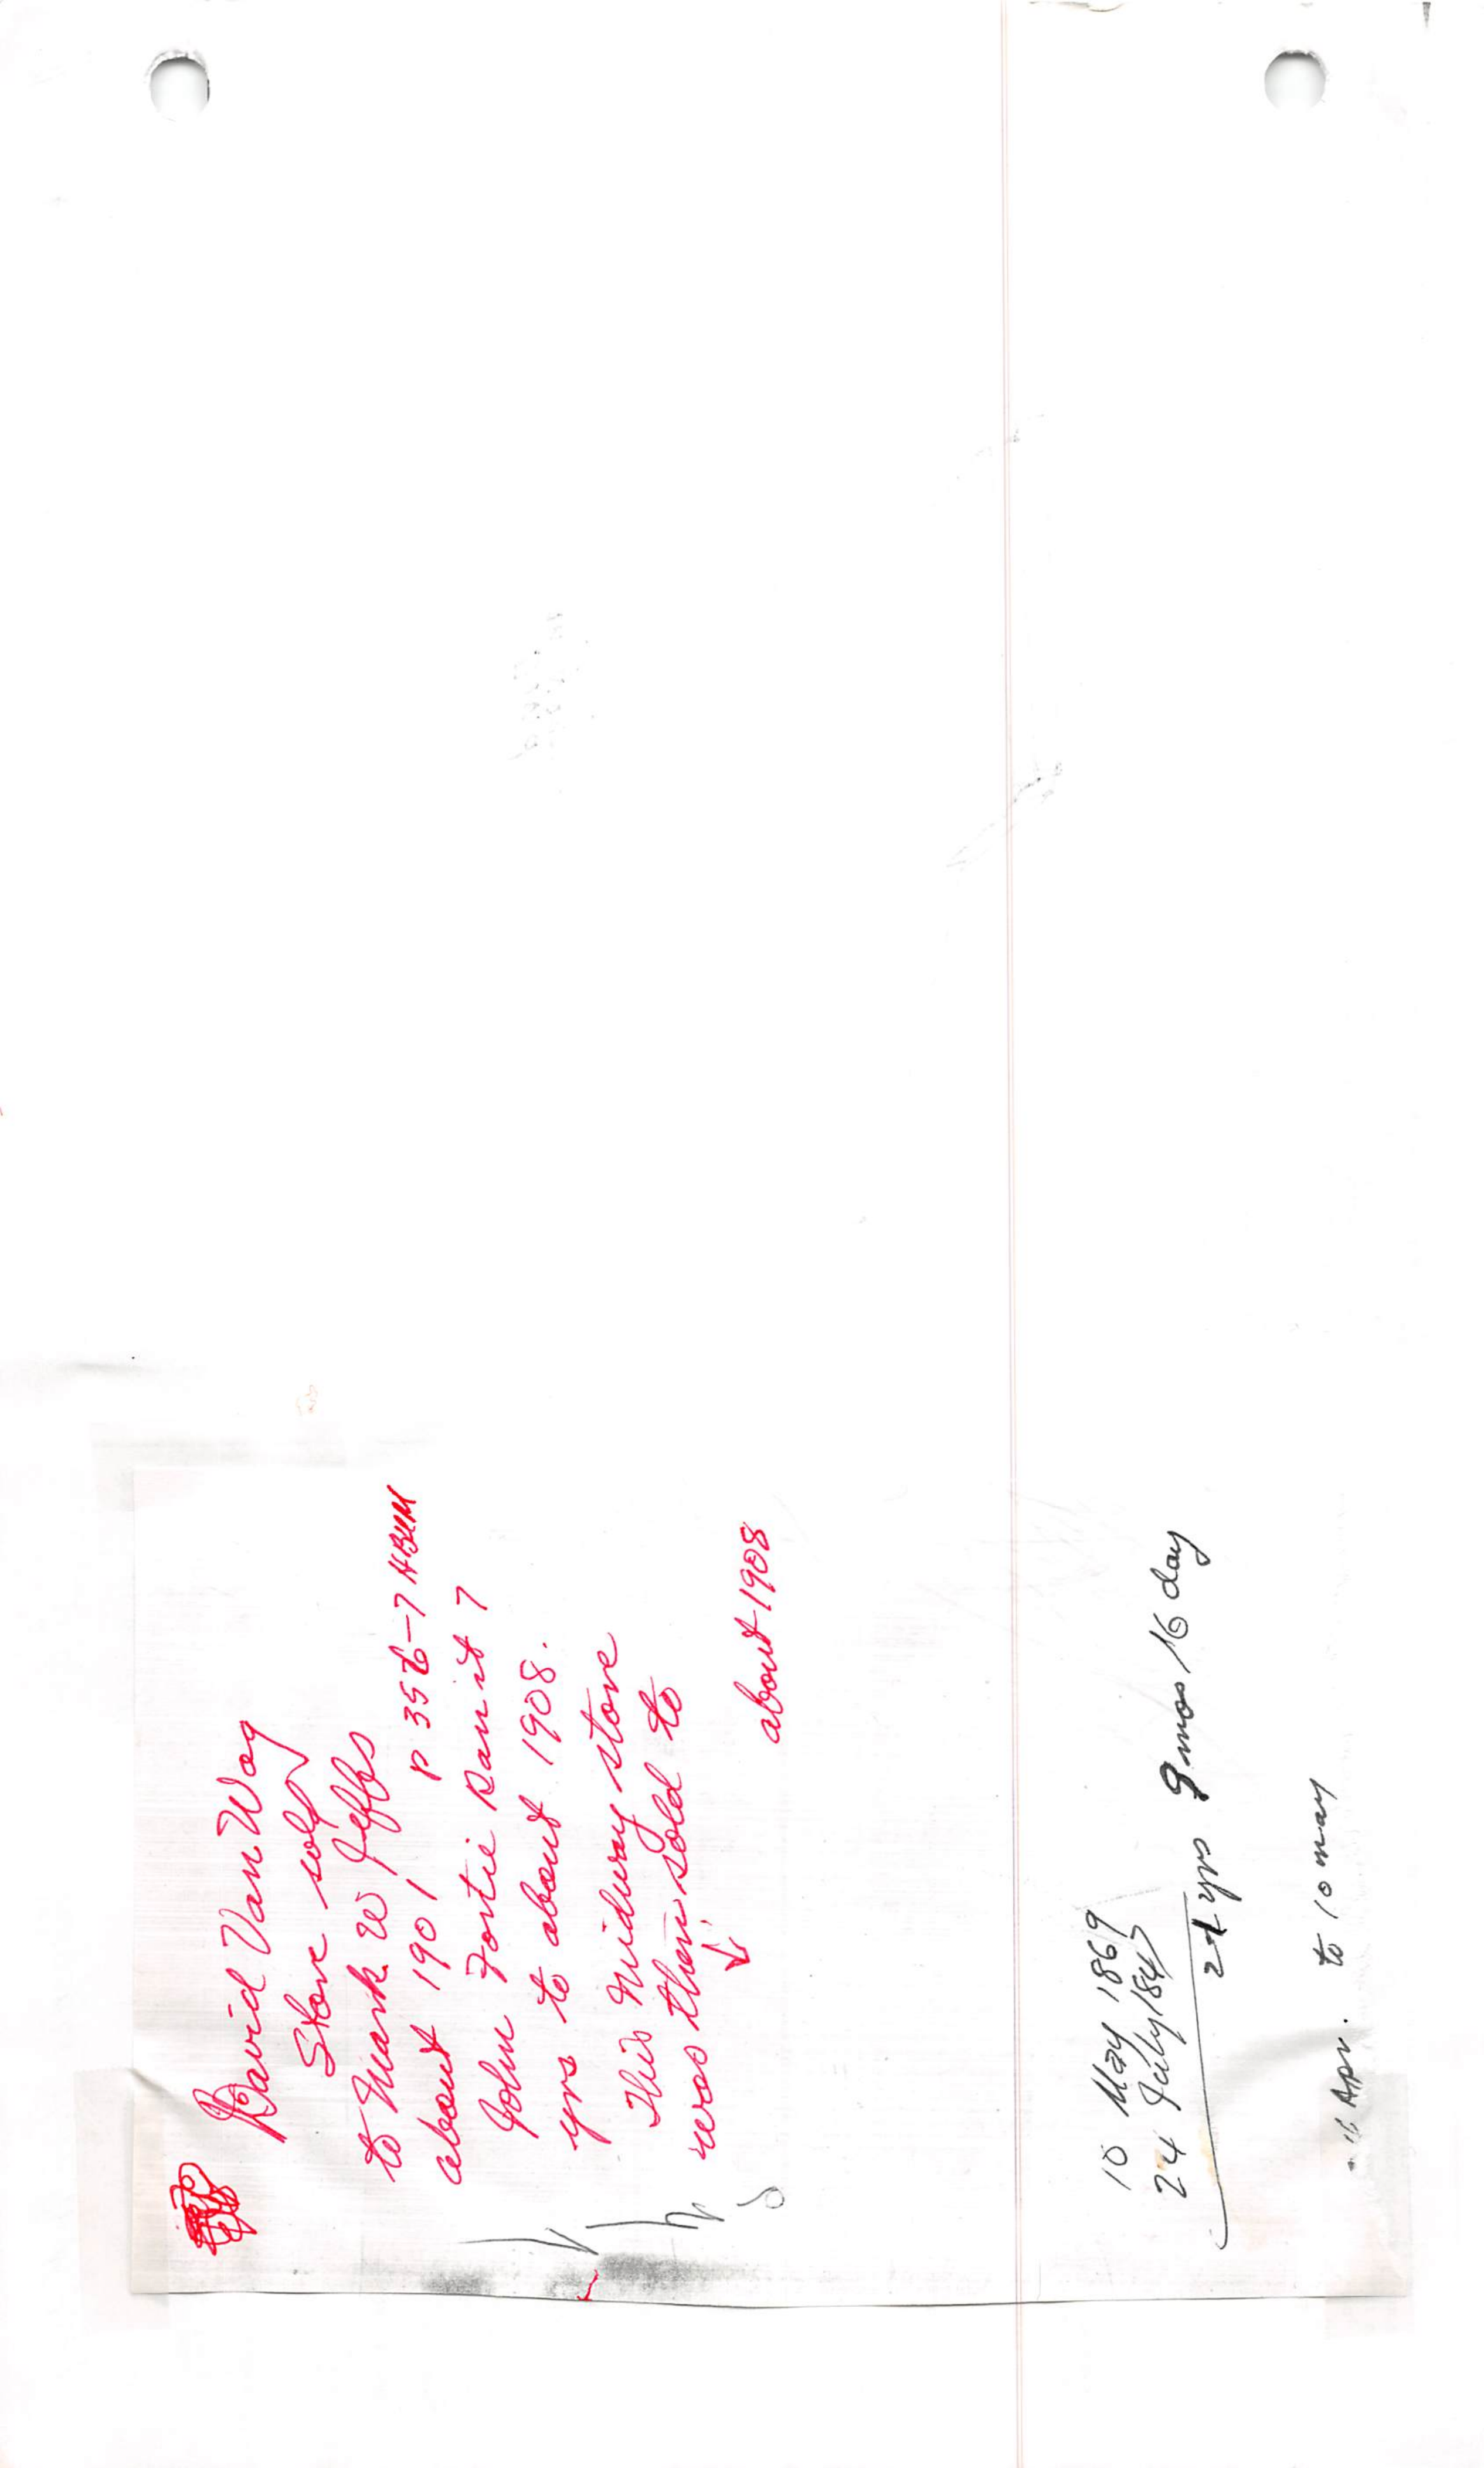 David Van Wag
Store sold
to Mark W Jeffs
about 1901 P 356-7 HBUM
John Fortie Ran it 7
yrs to about 1908.
This Midway store
was then sold to
↓
about 1908
10 May 1869
24 July 1847
21 yrs 9 mos 16 day
Apr. to 10 may